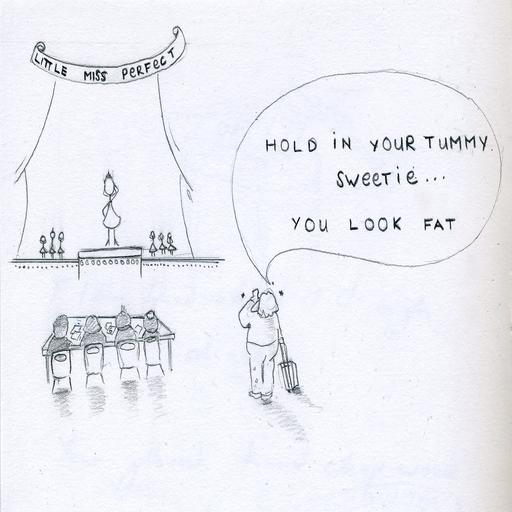 LITTLE MISS PERFECT
HOLD IN YOUR TUMMY.
SWEETIE...
YOU LOOK FAT